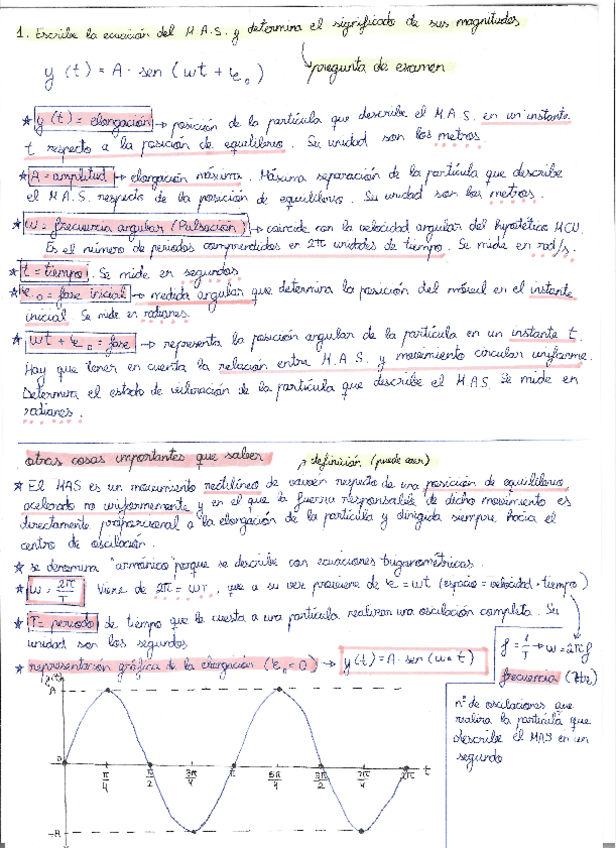 1. Escribe la ecuación del M.A.S. y determina el significado de sus magnitudes
y (t) = A · sen (ωt + φ₀)
pregunta de examen
★ y (t) = elongación → posición de la partícula que describe el M.A.S. en un instante
t respecto a la posición de equilibrio. Su unidad son los metros.
★ A = amplitud → elongación máxima. Máxima separación de la partícula que describe
el M.A.S. respecto de la posición de equilibrio. Su unidad son los metros.
★ ω = frecuencia angular (Pulsación) → coincide con la velocidad angular del hipotético MCU.
Es el número de periodos comprendidos en 2π unidades de tiempo. Se mide en rad/s.
★ t = tiempo. Se mide en segundos
★ φ₀ = fase inicial → medida angular que determina la posición del móvil en el instante
inicial. Se mide en radianes.
★ ωt + φ₀ = fase → representa la posición angular de la partícula en un instante t.
Hay que tener en cuenta la relación entre M.A.S. y movimiento circular uniforme.
Determina el estado de vibración de la partícula que describe el M.A.S. Se mide en
radianes.
otras cosas importantes que saber
→ definición (puede caer)
★ El MAS es un movimiento rectilíneo de vaivén respecto de una posición de equilibrio
acelerado no uniformemente y en el que la fuerza responsable de dicho movimiento es
directamente proporcional a la elongación de la partícula y dirigida siempre hacia el
centro de oscilación.
★ se denomina "armónico" porque se describe con ecuaciones trigonométricas.
★ ω = 2π/T Viene de 2π = ωT, que a su vez proviene de φ = ωt (espacio = velocidad · tiempo)
★ T = periodo de tiempo que le cuesta a una partícula realizar una oscilación completa. Su
unidad son los segundos
f = 1/T → ω = 2πf
frecuencia (Hz)
nº de oscilaciones que
realiza la partícula que
describe el MAS en un
segundo
★ representación gráfica de la elongación (φ₀ = 0) → y(t) = A · sen (ω · t)
y(t)
A
0
π/4 π/2 3π/4 π 5π/4 3π/2 7π/4 2π t
-A